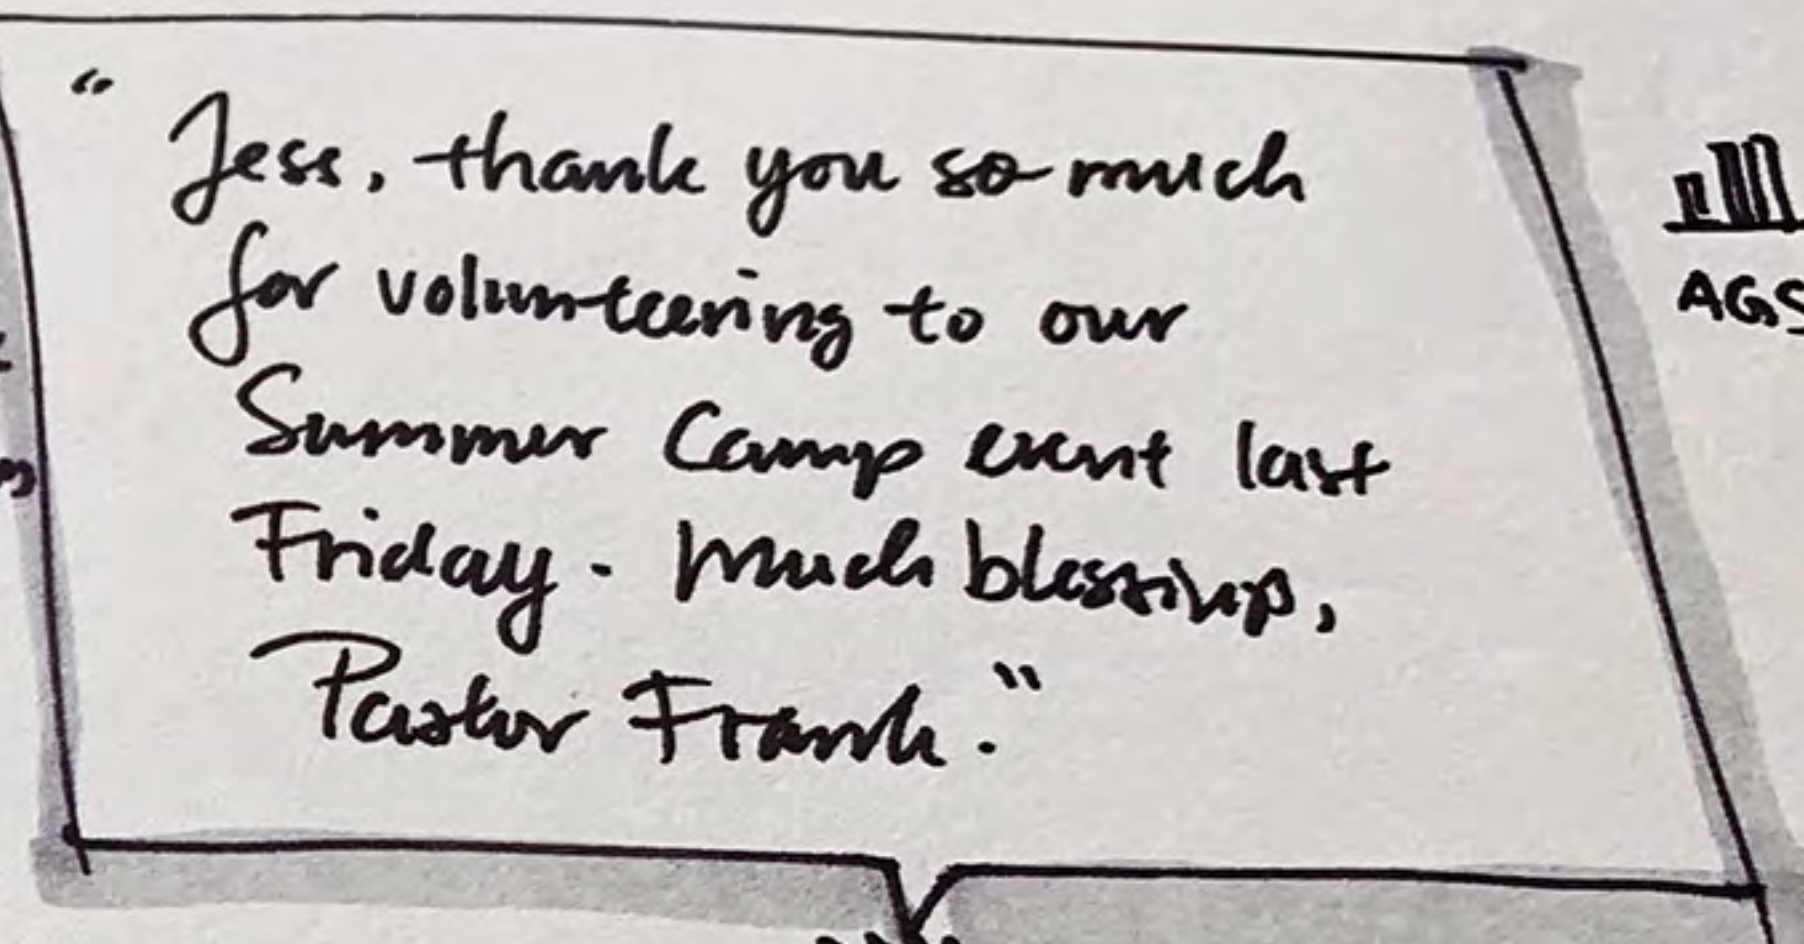 “Jess, thank you so much
for volunteering to our
Summer Camp event last
Friday. Much blessings,
Pastor Frank.”
AGS